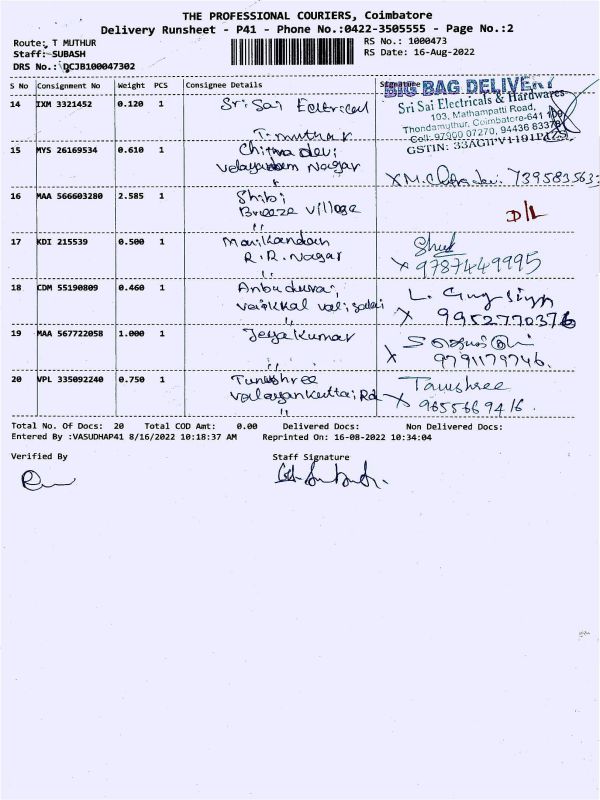 THE PROFESSIONAL COURIERS, Coimbatore
Delivery Runsheet - P41 - Phone No.:0422-3505555 - Page No.:2
Route: T MUTHUR
RS No.: 1000473
Staff: SUBASH
RS Date: 16-Aug-2022
DRS No.: DCJB100047302
S No Consignment No Weight PCS Consignee Details Signature
BIG BAG DELIVERY
14 IXM 3321452 0.120 1 Sri Sai Eclerical
T. muthur
Sri Sai Electricals & Hardwares
103, Mathampatti Road,
Thondamuthur, Coimbatore-641
Cell: 97900 07270, 94436
GSTIN:
15 MYS 26169534 0.610 1 Chitra devi
Nagar
X M. 739583563
16 MAA 566603280 2.585 1 Shibi
Breeze village
"
D/L
17 KDI 215539 0.500 1 Manikandan
R.R. Nagar
"
X 9787449995
18 CDM 55190809 0.460 1 Anbu durai
"
L.
X 9952770376
19 MAA 567722058 1.000 1 Jeya Kumar
"
X 9791179746.
20 VPL 335092240 0.750 1 Tanushree
Rd
"
Tanushree
X 9655669416.
Total No. Of Docs: 20 Total COD Amt: 0.00 Delivered Docs: Non Delivered Docs:
Entered By :VASUDHAP41 8/16/2022 10:18:37 AM Reprinted On: 16-08-2022 10:34:04
Verified By Staff Signature